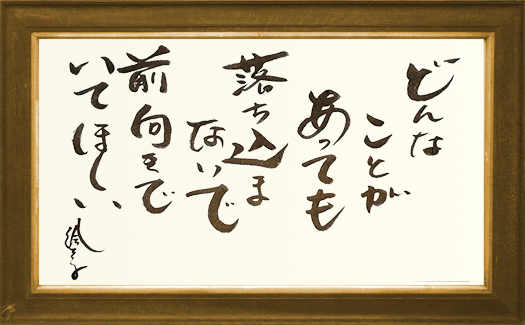 どんな
ことが
あっても
落ち込ま
ないで
前向きで
いてほしい